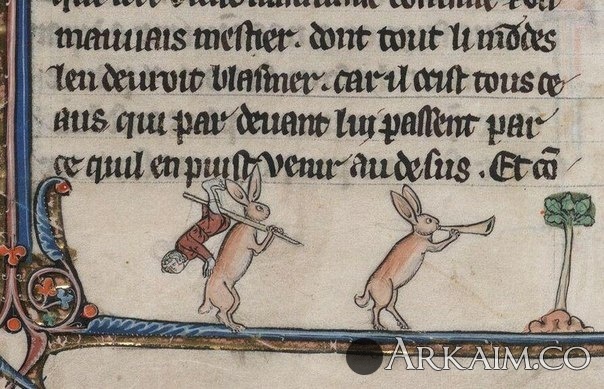 que
mauuais mestier. dont tout li mōdes
len deuroit blasmer. car il ocist tous ce
aus qui par deuant lui passent par
ce quil en puist venir au desus. Et cō
ARKAIM.CO